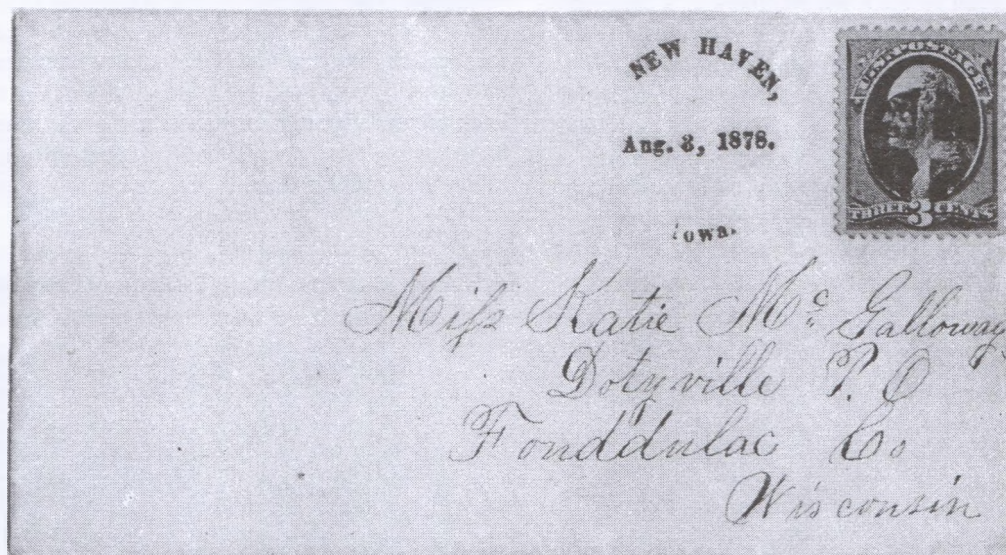 NEW HAVEN,
Aug. 3, 1878.
Iowa.
U.S. POSTAGE
THREE 3 CENTS
Miſs Katie Mc Galloway
Dotyville P.O
Fonddulac Co
Wisconsin